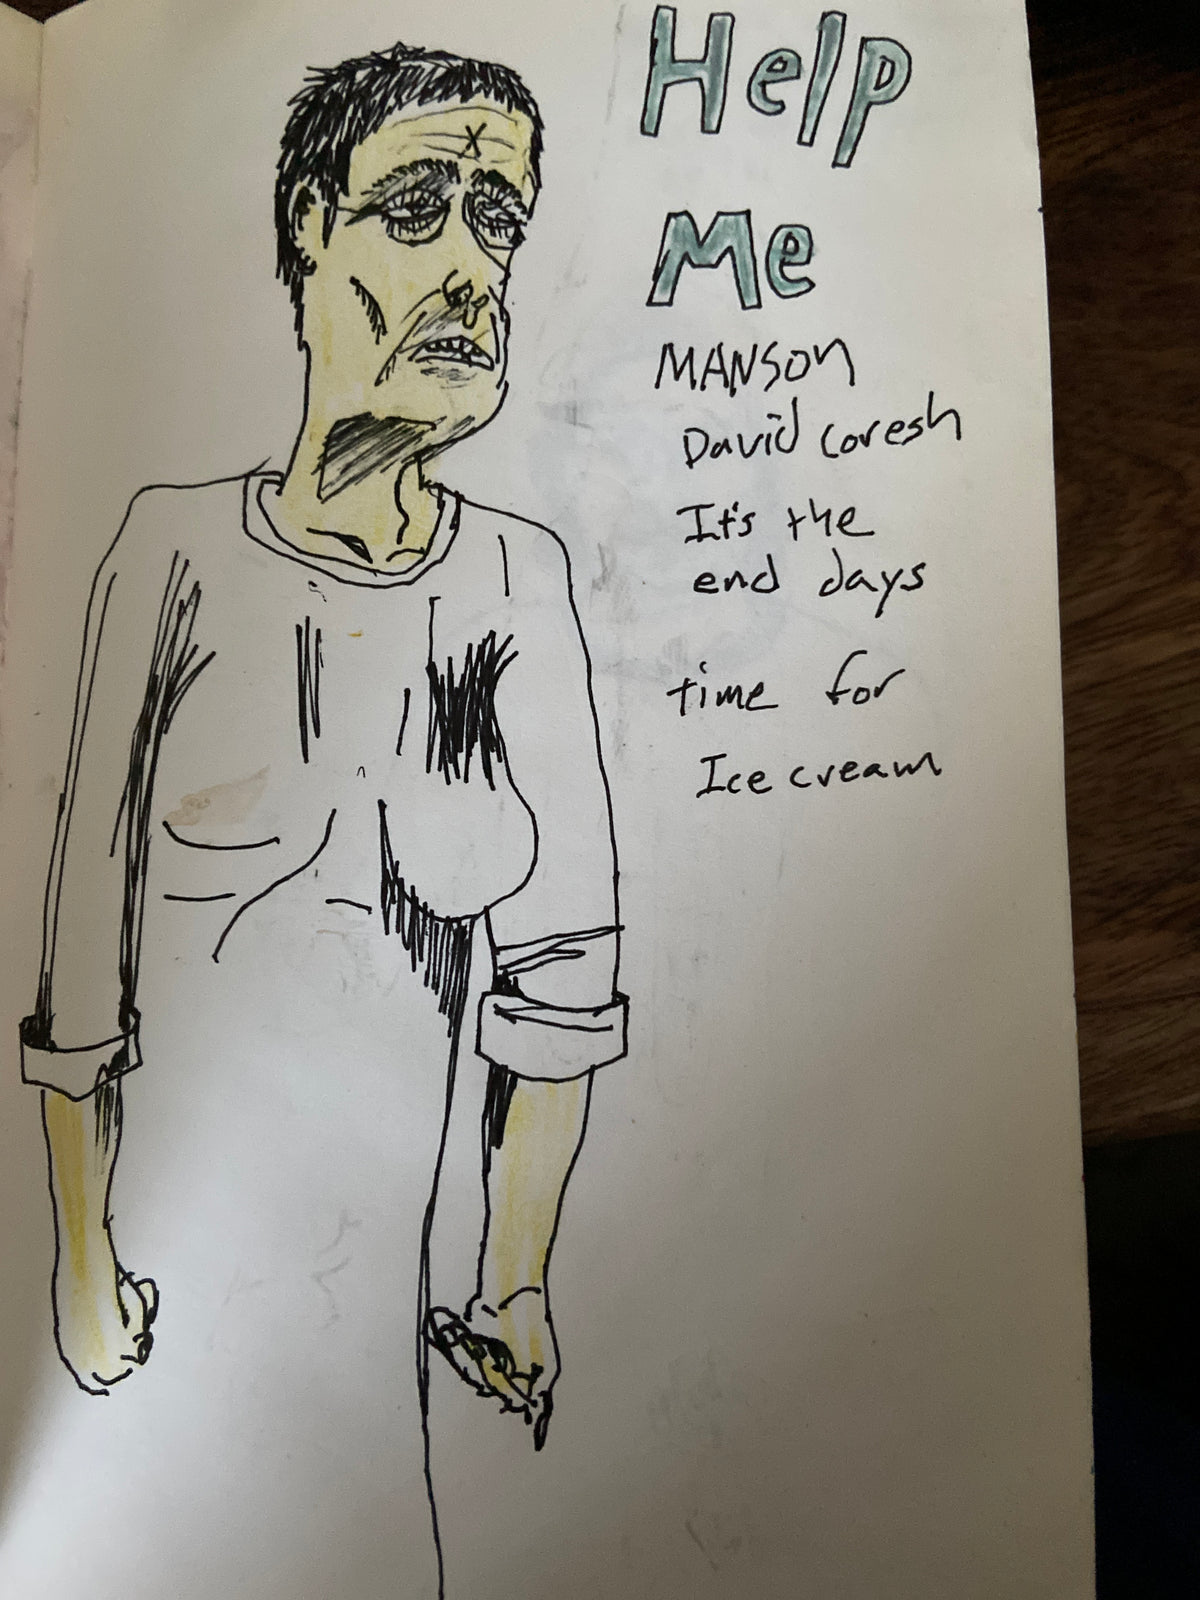 Help
Me
MANSON
David coresh
It's the
end days
time for
Ice cream